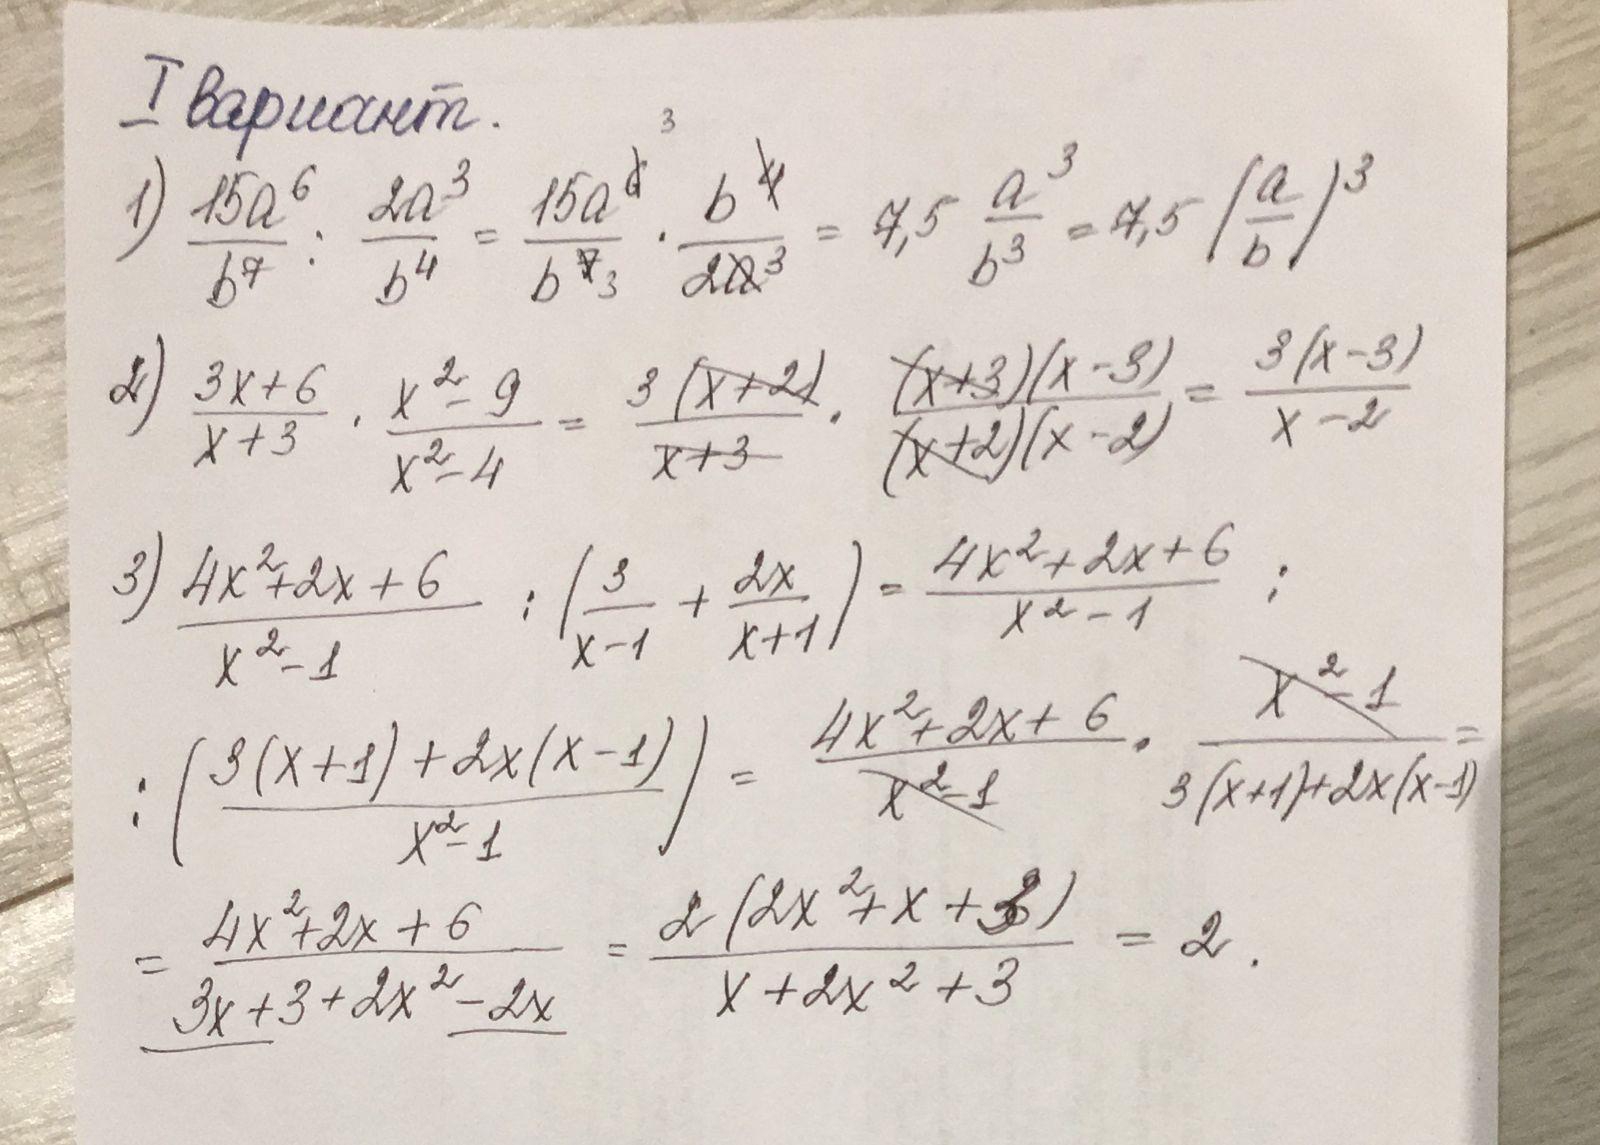 I вариант.
1) \frac{15a^6}{b^7} : \frac{2a^3}{b^4} = \frac{15a^{6 3}}{b^{7 3}} · \frac{b^4}{2a^3} = 7,5 \frac{a^3}{b^3} = 7,5 (\frac{a}{b})^3
2) \frac{3x+6}{x+3} · \frac{x^2-9}{x^2-4} = \frac{3(x+2)}{x+3} · \frac{(x+3)(x-3)}{(x+2)(x-2)} = \frac{3(x-3)}{x-2}
3) \frac{4x^2+2x+6}{x^2-1} : (\frac{3}{x-1} + \frac{2x}{x+1}) = \frac{4x^2+2x+6}{x^2-1} :
: (\frac{3(x+1)+2x(x-1)}{x^2-1}) = \frac{4x^2+2x+6}{x^2-1} · \frac{x^2-1}{3(x+1)+2x(x-1)} =
= \frac{4x^2+2x+6}{3x+3+2x^2-2x} = \frac{2(2x^2+x+3)}{x+2x^2+3} = 2.